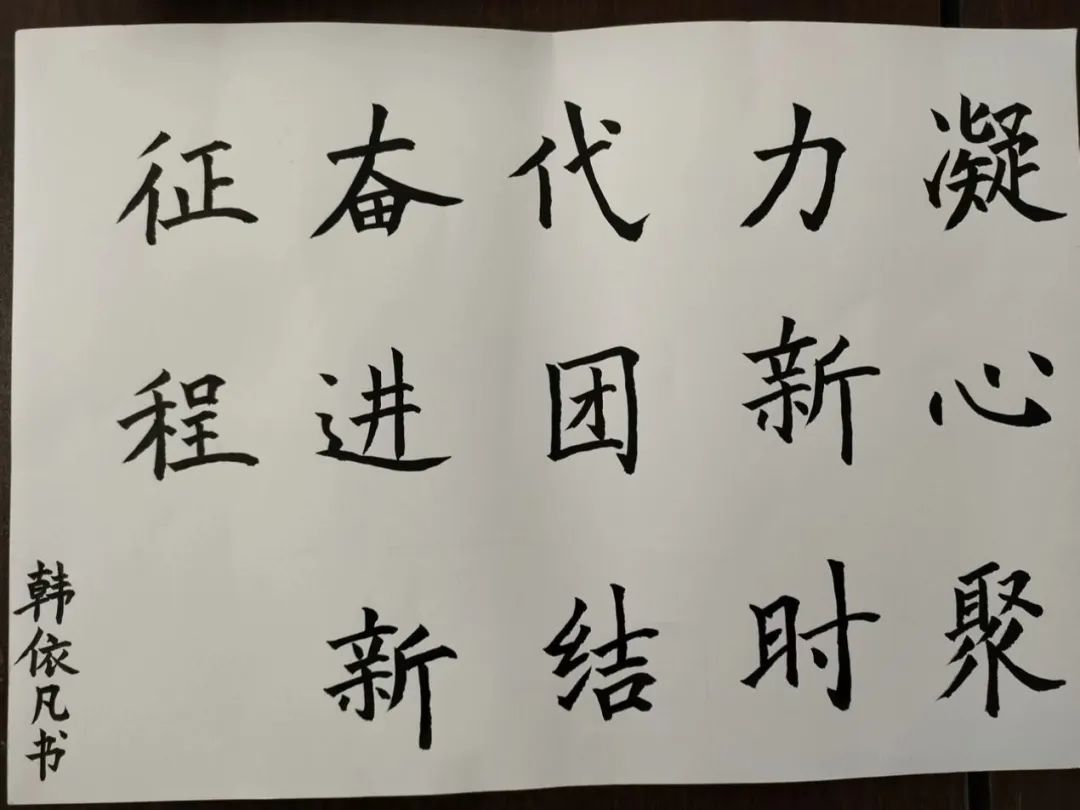 凝心聚
力新时
代团结
奋进新
征程
韩依凡书